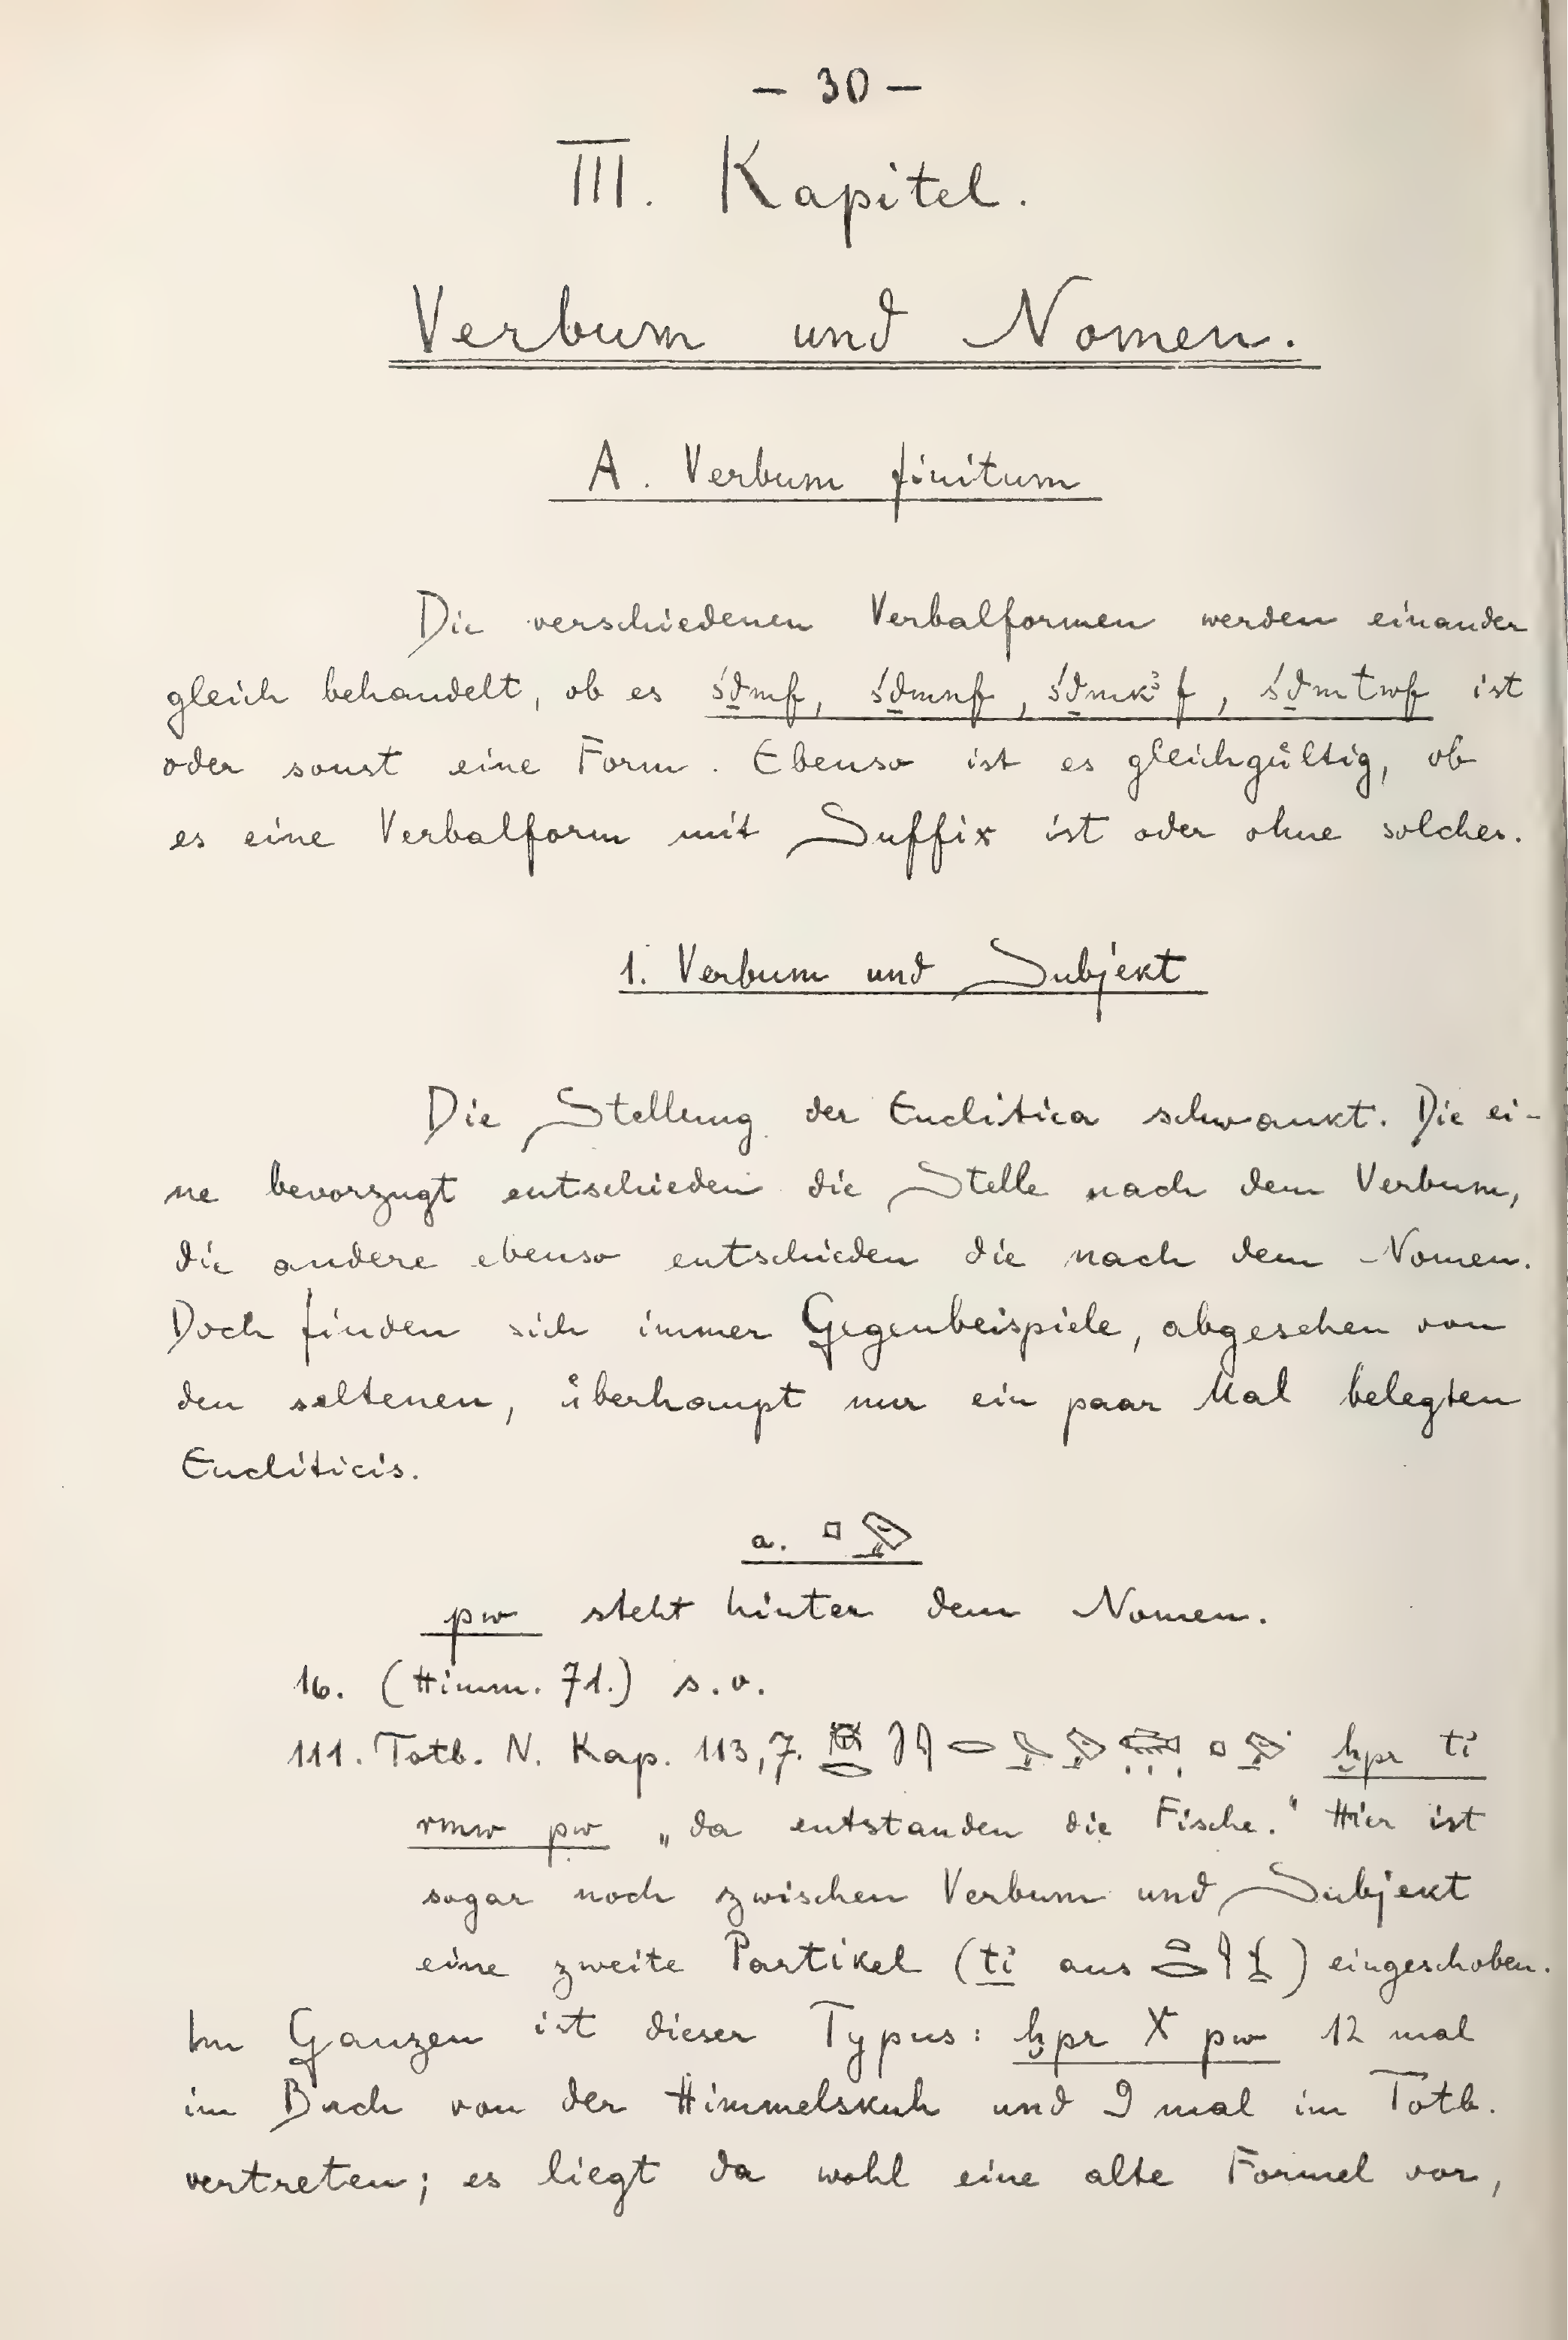 – 30 –
III. Kapitel.
Verbum und Nomen.
A. Verbum finitum
Die verschiedenen Verbalformen werden einander
gleich behandelt, ob es śḏmf, śḏmnf, śḏmkꜣf, śḏmtwf ist
oder sonst eine Form. Ebenso ist es gleichgültig, ob
es eine Verbalform mit Suffix ist oder ohne solches.
1. Verbum und Subjekt
Die Stellung der Enclitica schwankt. Die ei-
ne bevorzugt entschieden die Stelle nach dem Verbum,
die andere ebenso entschieden die nach dem Nomen.
Doch finden sich immer Gegenbeispiele, abgesehen von
den seltenen, überhaupt nur ein paar Mal belegten
Encliticis.
a. 𓊪𓅱
pw steht hinter dem Nomen.
16. (Himm. 71.) s.o.
111. Totb. N. Kap. 113,7. ḫpr ti
rmw pw „da entstanden die Fische." Hier ist
sogar noch zwischen Verbum und Subjekt
eine zweite Partikel (ti aus ) eingeschoben.
Im Ganzen ist dieser Typus: ḫpr X pw 12 mal
im Buch von der Himmelskuh und 9 mal im Totb.
vertreten; es liegt da wohl eine alte Formel vor,